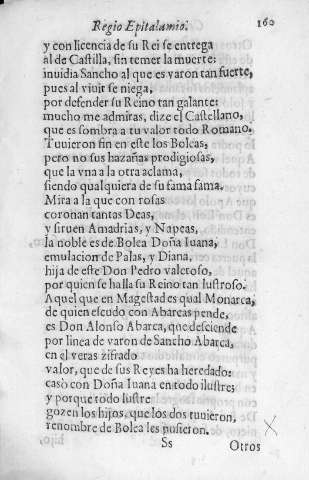 Regio Epitalamio.
160
y con licencia de su Rei se entrega
al de Castilla, sin temer la muerte:
inuidia Sancho al que es varon tan fuerte,
pues al viuir se niega,
por defender su Reino tan galante:
mucho me admiras, dize el Castellano,
que es sombra a tu valor todo Romano.
Tuuieron fin en este los Boleas,
pero no sus hazañas prodigiosas,
que la vna a la otra aclama,
siendo qualquiera de su fama fama.
Mira a la que con rosas
coronan tantas Deas,
y siruen Amadrias, y Napeas,
la noble es de Bolea Doña Iuana,
emulacion de Palas, y Diana,
hija de este Don Pedro valeroso,
por quien se halla su Reino tan lustroso.
Aquel que en Magestad es qual Monarca,
de quien escudo con Abarcas pende,
es Don Alonso Abarca, que desciende
por linea de varon de Sancho Abarca,
en el veras zifrado
valor, que de sus Reyes ha heredado:
casò con Doña Iuana en todo ilustre;
y porque todo lustre
gozen los hijos, que los dos tuuieron,
renombre de Bolea les pusieron.
Ss
Otros